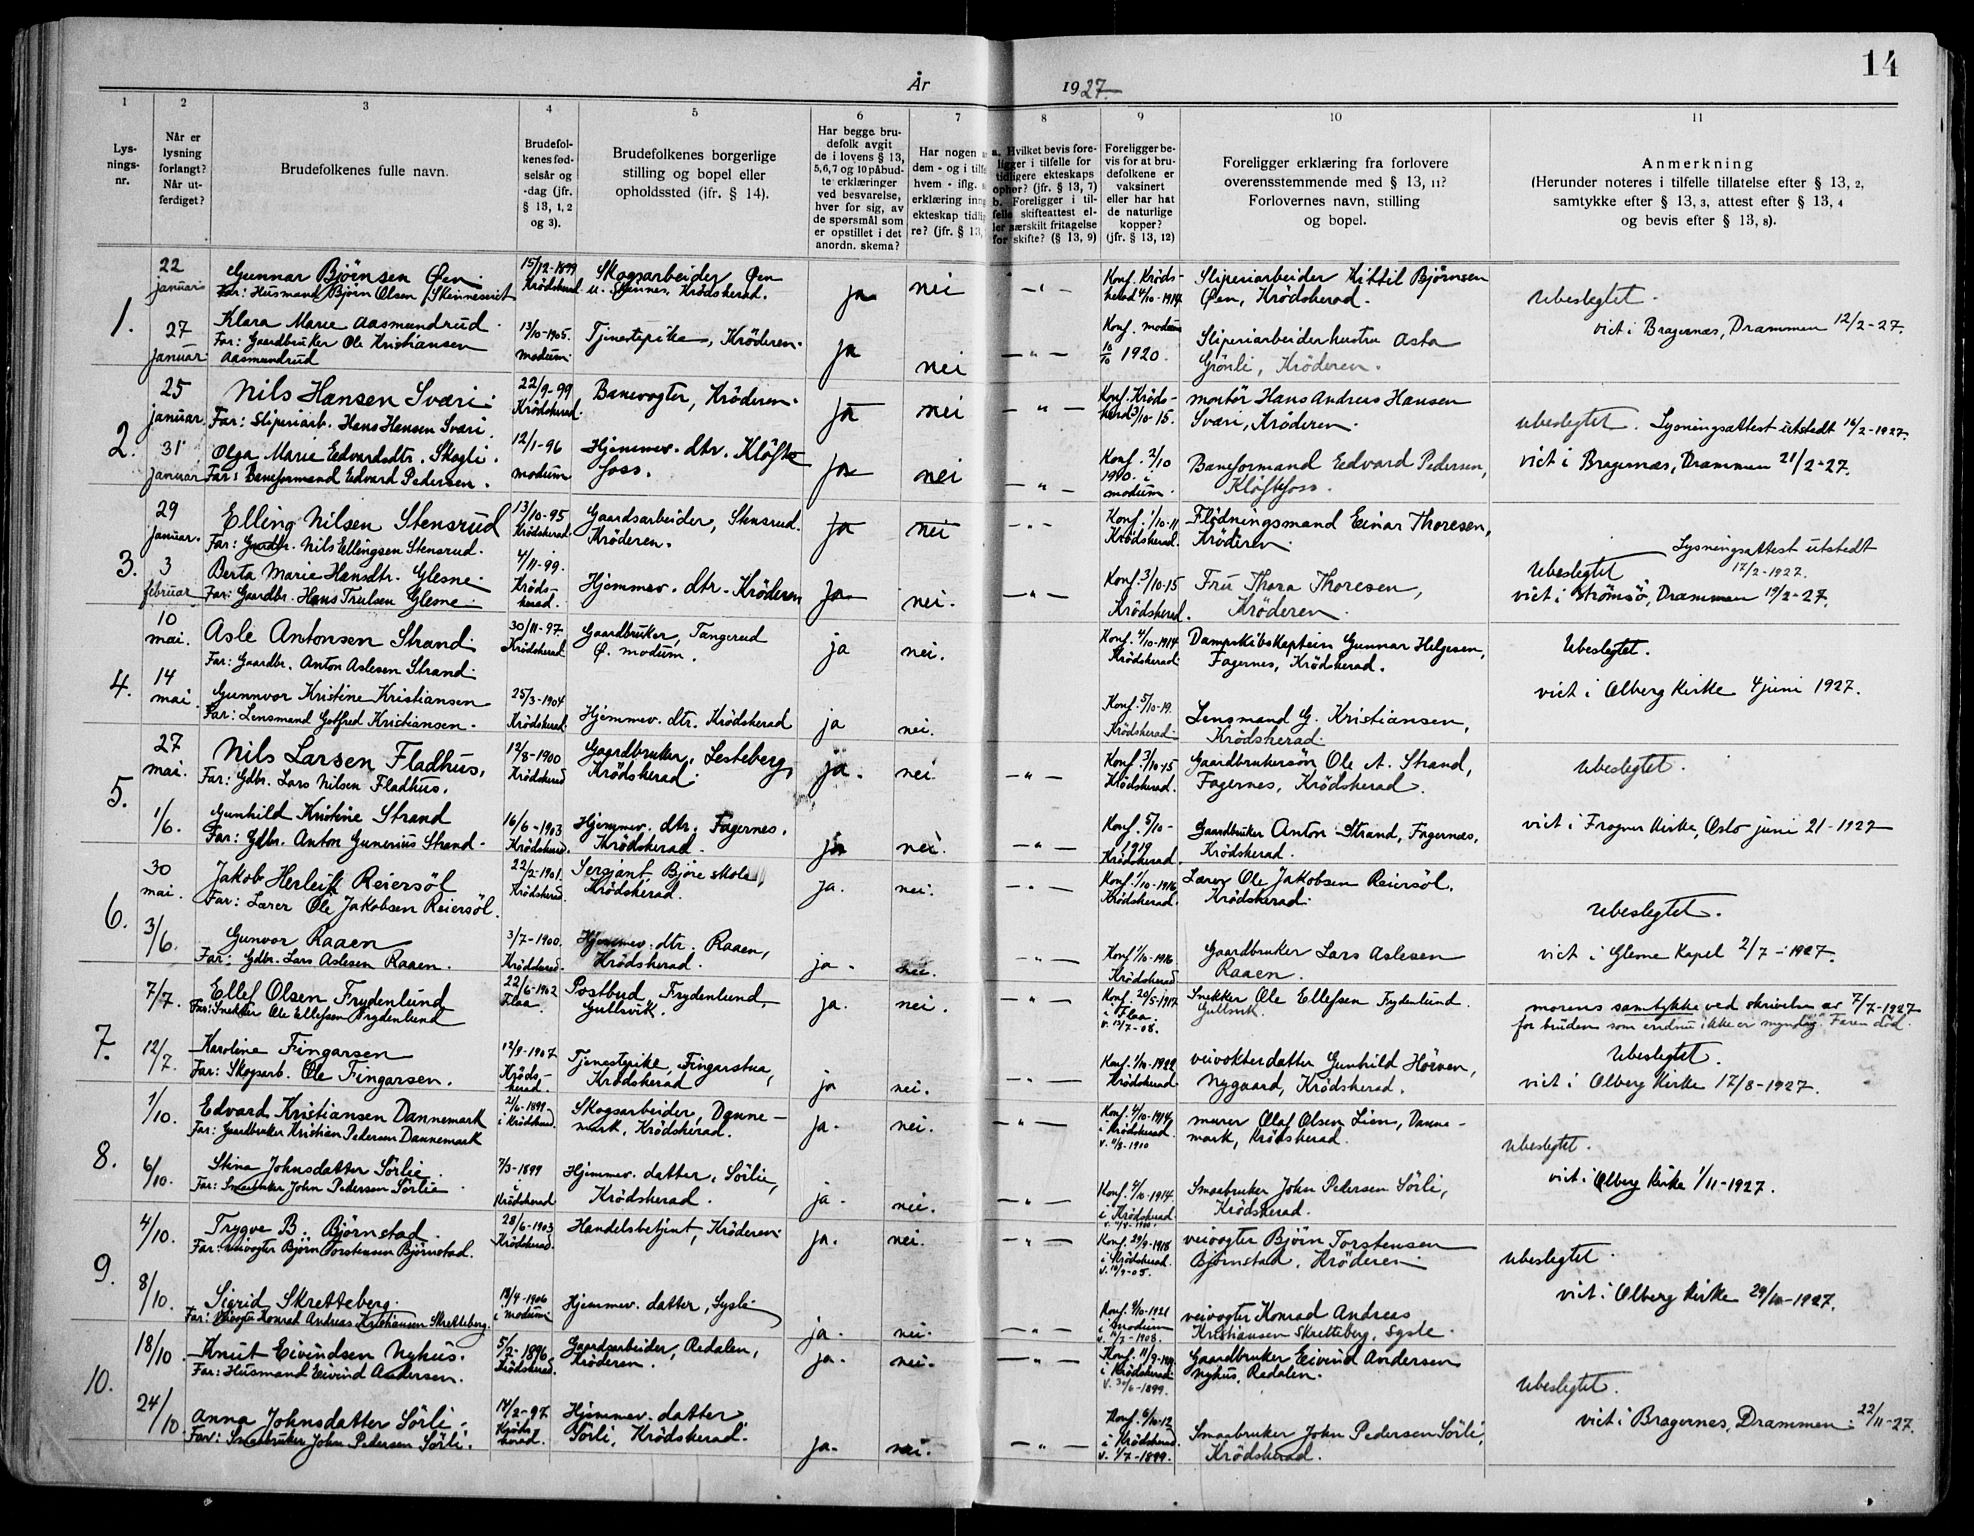 14
År 1927.
1 2 3 4 5 6 7 8 9 10 11
Lysningsnr.
Når er lysning forlangt? Når utferdiget?
Brudefolkenes fulle navn.
Brudefolkenes fødselsår og -dag (jfr. § 13, 1, 2 og 3).
Brudefolkenes borgerlige stilling og bopel eller opholdssted (jfr. § 14).
Har begge brudefolk avgit de i lovens § 13, 5,6,7 og 10 påbudte erklæringer ved besvarelse, hver for sig, av de spørsmål som er opstillet i det anordn. skema?
Har nogen dem - og i hvem - iflg. erklæring ekteskap re? (jfr. § 13,
a. Hvilket bevis foreligger i tilfelle for tidligere ekteskaps ophør? (jfr. § 13, 7)
b. Foreligger i tilfelle skifteattest eller særskilt fritagelse for skifte? (§ 13, 9)
Foreligger bevis for at brudefolkene er vaksinert eller har hat de naturlige kopper? (jfr. § 13, 12)
Foreligger erklæring fra forlovere overensstemmende med § 13, 11? Forlovernes navn, stilling og bopel.
Anmerkning
(Herunder noteres i tilfelle tillatelse efter § 13, 2, samtykke efter § 13, 3, attest efter § 13, 4 og bevis efter § 13, 8).
1.
22 januar
Gunnar Björnsen Øen.
Far: Husmand Björn Olsen Skinneseiet
15/12-1899 Krödsherad
Skogsarbeider Øen u. Skinnes, Krödsherad.
ja nei — " —
Konf. Krödsherad 4/10-1914
Sliperiarbeider Kittil Björnsen Øen, Krödsherad.
Ubeslegtet.
27 januar
Klara Marie Aasmundrud
Far: Gaardbruker Ole Kristiansen Aasmundrud
13/10-1905. Modum.
Tjenestepike, Kröderen.
ja nei — " —
Konf. Modum 10/10 1920.
Sliperiarbeiderhustru Asta Grönli, Kröderen.
viet i Bragernæs, Drammen 12/2-27.
2.
25 januar
Nils Hansen Svari.
Far: Sliperiarb. Hans Hansen Svari.
22/9-99 Krödsherad.
Banevogter, Kröderen.
ja nei — " —
Konf. Krödsherad 3/10-15.
Montör Hans Andreas Hansen Svari, Kröderen.
Ubeslegtet. Lysningsattest utstedt 16/2-1927.
31 januar
Olga Marie Edvardsdtr. Skogli.
Far: Baneformand Edvard Pedersen.
12/1-96 Modum
Hjemmev. dtr. Klöftefoss.
ja nei — " —
Konf. 2/10 1910. i Modum.
Baneformand Edvard Pedersen, Klöftefoss.
viet i Bragernæs, Drammen 21/2-27.
3.
29 januar.
Elling Nilsen Stensrud
Far: Gaardbr. Nils Ellingsen Stensrud.
13/10-95 Krödsherad.
Gaardsarbeider, Stensrud. Kröderen.
ja nei — " —
Konf. 1/10-11 Krödsherad.
Flödningsmand Einar Thoresen, Kröderen.
Lysningsattest utstedt 17/2-1927.
3 februar
Berta Marie Hansdtr. Glesne.
Far: Gaardbr. Hans Trulsen Glesne.
4/11-99. Krödsherad.
Hjemmev. dtr. Kröderen
ja nei. — " —
Konf. 3/10-15 Krödsherad.
Fru Thora Thoresen, Kröderen.
Ubeslegtet
viet i Strömsö, Drammen 19/2-27.
4.
10 mai.
Asle Antonsen Strand.
Far: Gaardbr. Anton Aslesen Strand.
30/11-97. Krödsherad.
Gaardbruker, Tangerud Ø. Modum.
ja nei.
Konf. 4/10-1914 Krödsherad.
Dampskibskaptein Gunnar Helgesen, Fagernes, Krödsherad.
Ubeslegtet.
14 mai.
Gunnvor Kristine Kristiansen
Far: Lensmand Gotfred Kristiansen.
25/3-1904 Krödsherad.
Hjemmev. dtr. Krödsherad
ja nei.
Konf. 5/10-19. Krödsherad.
Lensmand G. Kristiansen, Krödsherad.
viet i Olberg Kirke 4 juni 1927.
5.
27 mai.
Nils Larsen Fladhus.
Far: Gdbr. Lars Nilsen Fladhus.
12/8-1900 Krödsherad
Gaardbruker, Lesteberg, Krödsherad.
ja. nei — " —
Konf. 3/10-15 Krödsherad.
Gaardbrukersön Ole A. Strand, Fagernes, Krödsherad.
Ubeslegtet.
1/6.
Gunhild Kristine Strand
Far: Gdbr. Anton Gunerius Strand.
16/6-1903 Krödsherad.
Hjemmev. dtr. Fagernes. Krödsherad.
ja nei. — " —
Konf. 5/10-1919 Krödsherad.
Gaardbruker Anton Strand, Fagernæs, Krödsherad.
viet i Frogner Kirke, Oslo juni 21-1927
6.
30 mai.
Jakob Herleik Reiersöl
Far: Lærer Ole Jakobsen Reiersöl.
22/2-1901. Krödsherad.
Sergiant Björe skole, Krödsherad.
ja. nei. — " —
Konf. 1/10-1916 Krödsherad.
Lærer Ole Jakobsen Reiersöl. Krödsherad.
Ubeslegtet.
3/6.
Gunvor Raaen
Far: Gdbr. Lars Aslesen Raaen.
3/7-1900. Krödsherad.
Hjemmev. dtr. Raaen, Krödsherad.
ja. nei. — " —
Konf. 1/10-1916 Krödsherad
Gaardbruker Lars Aslesen Raaen.
viet i Glesne Kapel 2/7-1927.
7.
7/7.
Ellef Olsen Frydenlund
Far: Snekker Ole Ellefsen Frydenlund
22/6-1902 Flaa.
Postbud, Frydenlund, Gullsvik.
ja. nei. — " —
Konf. 20/5-1917 i Flaa. v. 13/7-08.
Snekker Ole Ellefsen Frydenlund. Gullsvik.
Morens samtykke ved skrivelse av 7/7-1927
for bruden som endnu ikke er myndig. Faren död.
12/7.
Karoline Fingarsen
Far: Skogsarb. Ole Fingarsen.
12/9-1907 Krödsherad.
Tjenestepike, Fingarstua, Krödsherad
ja nei. — " —
Konf. 1/10-1922 Krödsherad.
Veivokterdatter Gunhild Hörven, Nygaard, Krödsherad.
Ubeslegtet.
viet i Olberg Kirke 17/8-1927.
8.
1/10.
Edvard Kristiansen Dannemark
Far: Gaardbruker Kristian Pedersen Dannemark
21/6-1899 i Krödsherad.
Skogsarbeider, Dannemark, Krödsherad.
ja. nei. — " —
Konf. 4/10-1914 i Krödsherad. v. 11/8-1900
Murer Olaf Olsen Lien, Dannemark, Krödsherad.
Ubeslegtet.
6/10.
Stina Johnsdatter Sörlie
Far: Smaabruker John Pedersen Sörlie
7/3-1899 i Krödsherad
Hjemmev. datter, Sörlie, Krödsherad.
ja. nei. — " —
Konf. 4/10-1914. i Krödsherad
Smaabruker John Pedersen Sörli, Krödsherad.
viet i Olberg Kirke 1/11-1927.
9.
4/10.
Trygve B. Björnstad.
Far: Veivogter Björn Torstensen Björnstad.
28/6-1903 Krödsherad.
Handelsbetjent, Kröderen.
ja. nei. — " —
Konf. 29/9-1918 i Krödsherad. v. 12/9-05.
Veivogter Björn Torstensen Björnstad, Kröderen
Ubeslegtet.
8/10.
Sigrid Skretteberg.
Far: Veivogter Konrad Andreas Kristiansen Skretteberg.
18/4-1906 i Modum
Hjemmev. datter, Sysle
ja. nei. — " —
Konf. 9/10-1921 i Modum v. 11/7-1908.
Veivogter Konrad Andreas Kristiansen Skretteberg, Sysle.
viet i Olberg Kirke 29/10-1927.
10.
18/10.
Knut Eivindsen Nyhus.
Far: Husmand Eivind Andersen.
5/2-1896 Krödsherad.
Gaardsarbeider, Redalen, Kröderen.
ja. nei. — " —
Konf. 11/9-1910 i Krödsherad. v. 30/6-1899.
Gaardbruker Eivind Andersen Nyhus, Redalen.
Ubeslegtet.
24/10.
Anna Johnsdatter Sörli.
Far: Smaabruker John Pedersen Sörli.
14/2-97 Krödsherad.
Hjemmev. datter Sörli, Krödsherad.
ja. nei. — " —
Konf. 6/10-12 i Krödsherad. v. 1/7-1899.
Smaabruker John Pedersen Sörli, Krödsherad.
viet i Bragernes, Drammen 22/11-27.